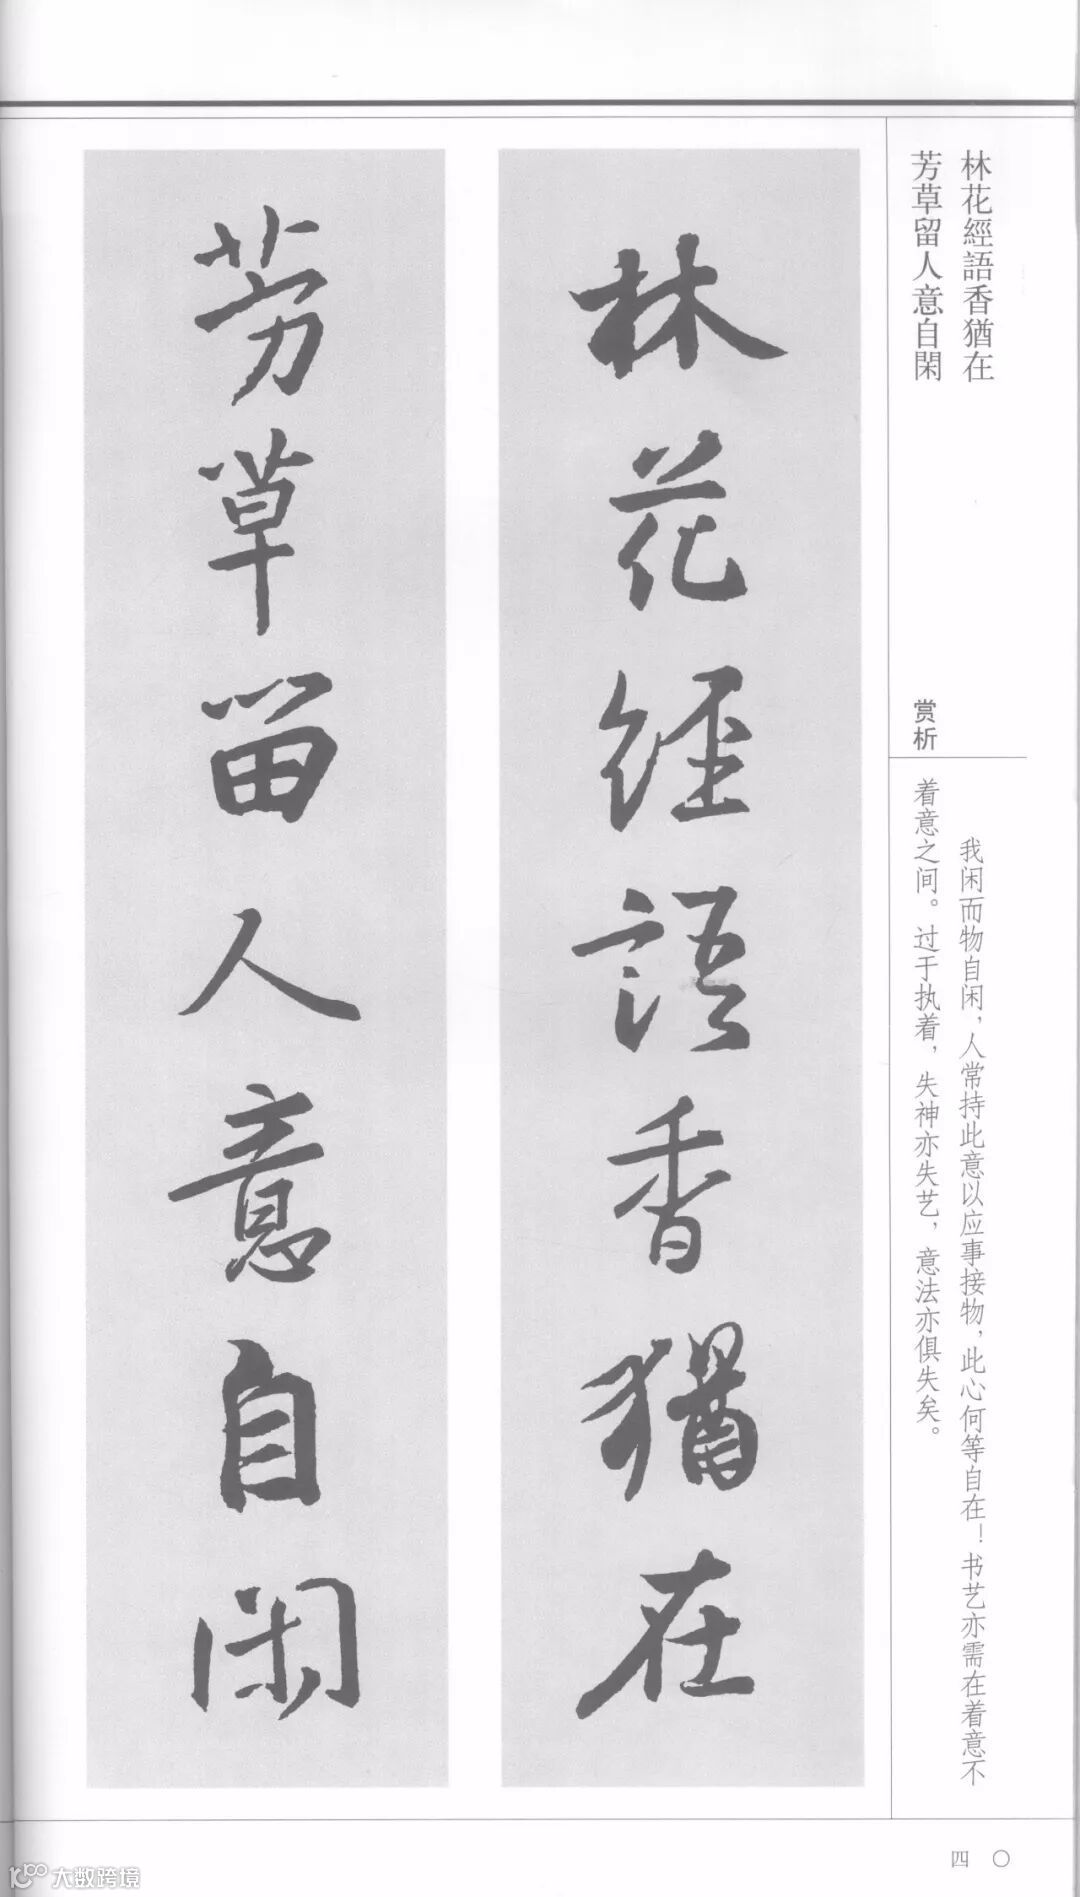 林花經語香猶在
芳草留人意自閑
赏析
我闲而物自闲，人常持此意以应事接物，此心何等自在！书艺亦需在着意不
着意之间。过于执着，失神亦失艺，意法亦俱失矣。
林花經語香猶在
芳草留人意自閑
四〇
大数跨境